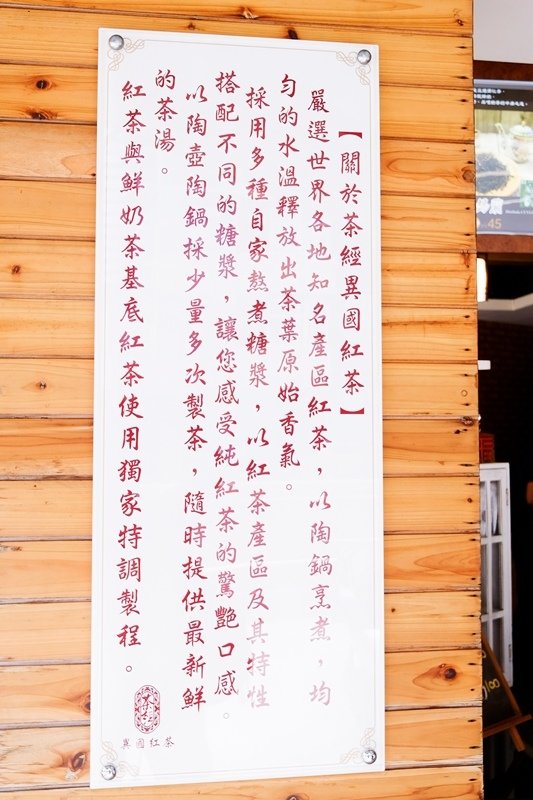 【關於茶經異國紅茶】
嚴選世界各地知名產區紅茶，以陶鍋烹煮，均
勻的水溫釋放出茶葉原始香氣。
採用多種自家熬煮糖漿，以紅茶產區及其特性
搭配不同的糖漿，讓您感受純紅茶的驚艷口感。
以陶壺陶鍋採少量多次製茶，隨時提供最新鮮
的茶湯。
紅茶與鮮奶茶基底紅茶使用獨家特調製程。
異國紅茶
45